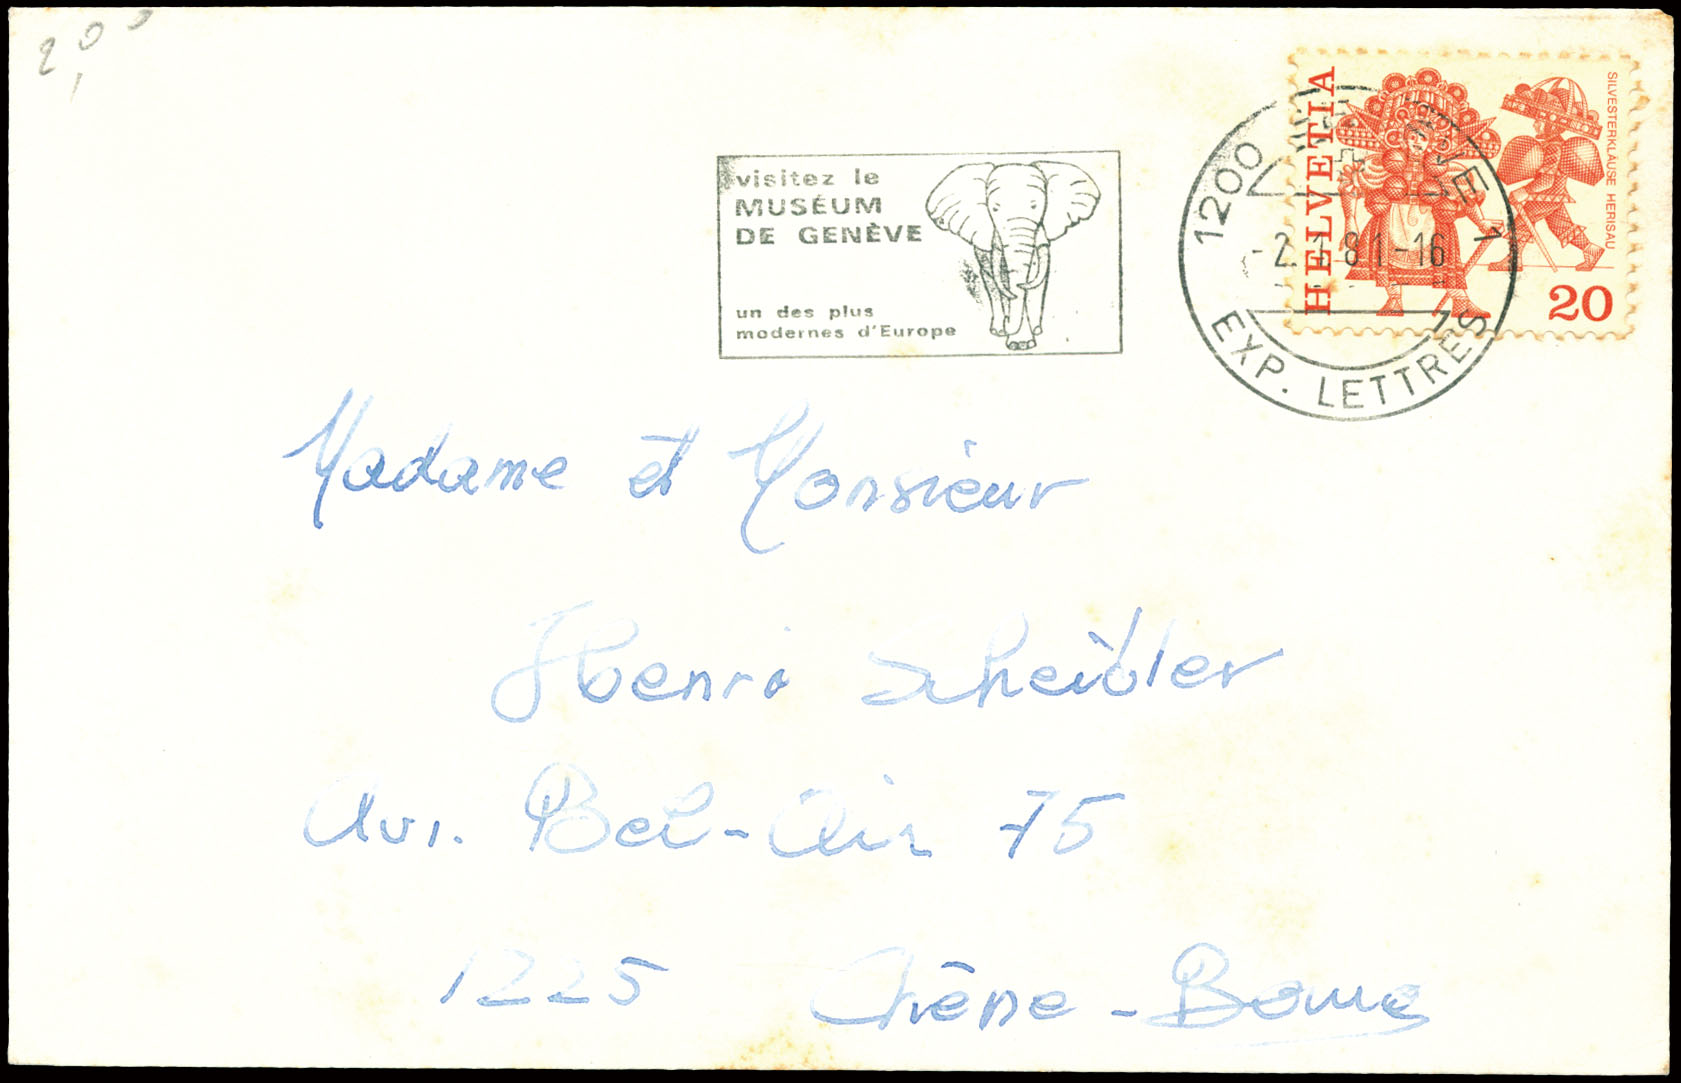 2,00
visitez le
MUSÉUM
DE GENÈVE
un des plus
modernes d'Europe
1200 GENÈVE 1
-2.1.81-16
EXP. LETTRES
HELVETIA
SILVESTERKLÄUSE HERISAU
20
Madame et Monsieur
Henri Scheibler
Av. Bel-Air 75
1225 Chêne-Bourg